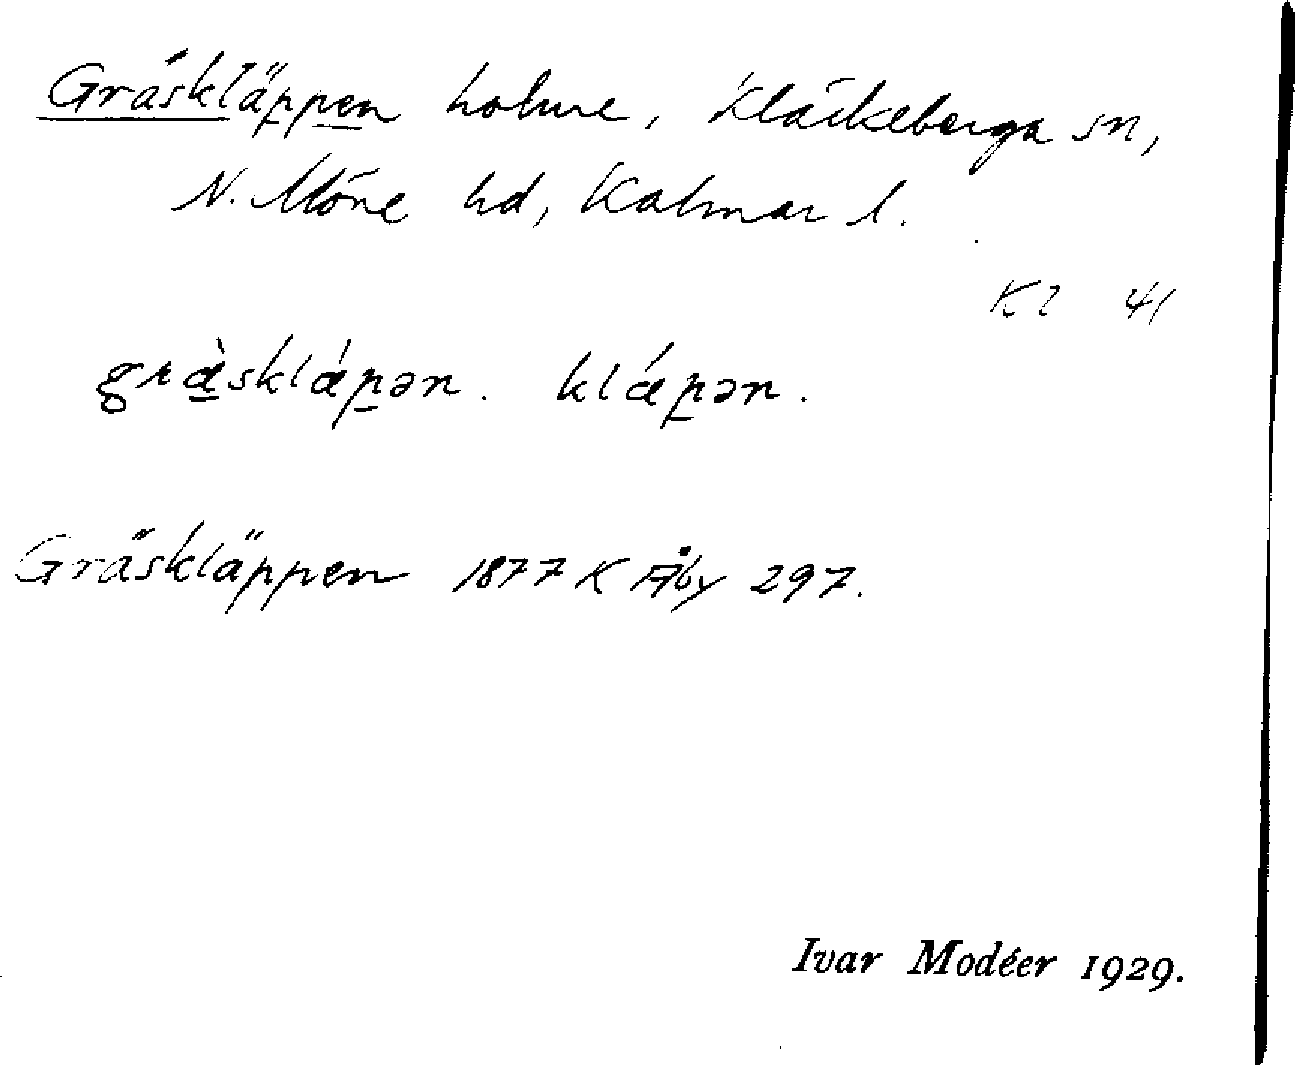 Gräskläppen holme, Kläckeberga sn,
N. Möre hd, Kalmar l.
Kl 41
græ̀sklǽpən. klǽpən.
Gräskläppen 1877 K Åby 297.
Ivar Modéer 1929.